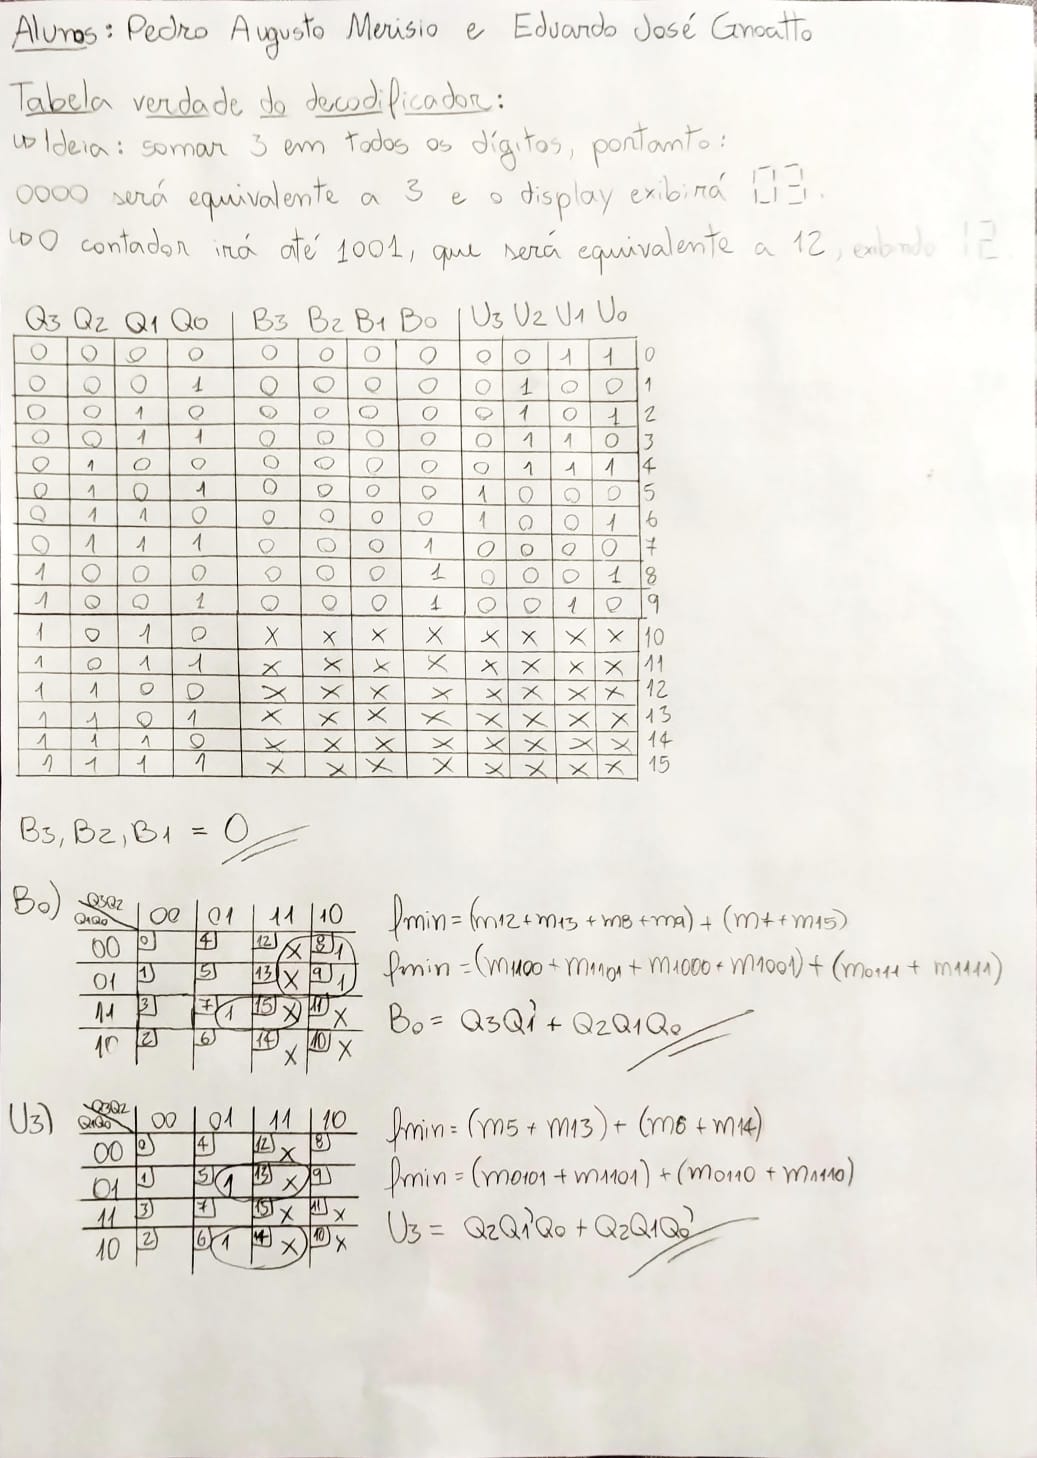 Alunos: Pedro Augusto Merisio e Eduardo José Gnoatto
Tabela verdade do decodificador:
↳ Ideia: somar 3 em todos os dígitos, portanto:
0000 será equivalente a 3 e o display exibirá 03.
↳ O contador irá até 1001, que será equivalente a 12, exibindo 12.
Q3 Q2 Q1 Q0 | B3 B2 B1 B0 | U3 U2 U1 U0
0 0 0 0 0 0 0 0 0 0 1 1 0
0 0 0 1 0 0 0 0 0 1 0 0 1
0 0 1 0 0 0 0 0 0 1 0 1 2
0 0 1 1 0 0 0 0 0 1 1 0 3
0 1 0 0 0 0 0 0 0 1 1 1 4
0 1 0 1 0 0 0 0 1 0 0 0 5
0 1 1 0 0 0 0 0 1 0 0 1 6
0 1 1 1 0 0 0 1 0 0 0 0 7
1 0 0 0 0 0 0 1 0 0 0 1 8
1 0 0 1 0 0 0 1 0 0 1 0 9
1 0 1 0 X X X X X X X X 10
1 0 1 1 X X X X X X X X 11
1 1 0 0 X X X X X X X X 12
1 1 0 1 X X X X X X X X 13
1 1 1 0 X X X X X X X X 14
1 1 1 1 X X X X X X X X 15
B3, B2, B1 = 0
B0) Q3Q2 Q1Q0 00 01 11 10
00 0 4 12 X 8 1
01 1 5 13 X 9 1
11 3 7 1 15 X 11 X
10 2 6 14 X 10 X
fmin = (m12 + m13 + m8 + m9) + (m7 + m15)
fmin = (m1100 + m1101 + m1000 + m1001) + (m0111 + m1111)
B0 = Q3Q1' + Q2Q1Q0
U3) Q3Q2 Q1Q0 00 01 11 10
00 0 4 12 X 8
01 1 5 1 13 X 9
11 3 7 15 X 11 X
10 2 6 1 14 X 10 X
fmin = (m5 + m13) + (m6 + m14)
fmin = (m0101 + m1101) + (m0110 + m1110)
U3 = Q2Q1'Q0 + Q2Q1Q0'